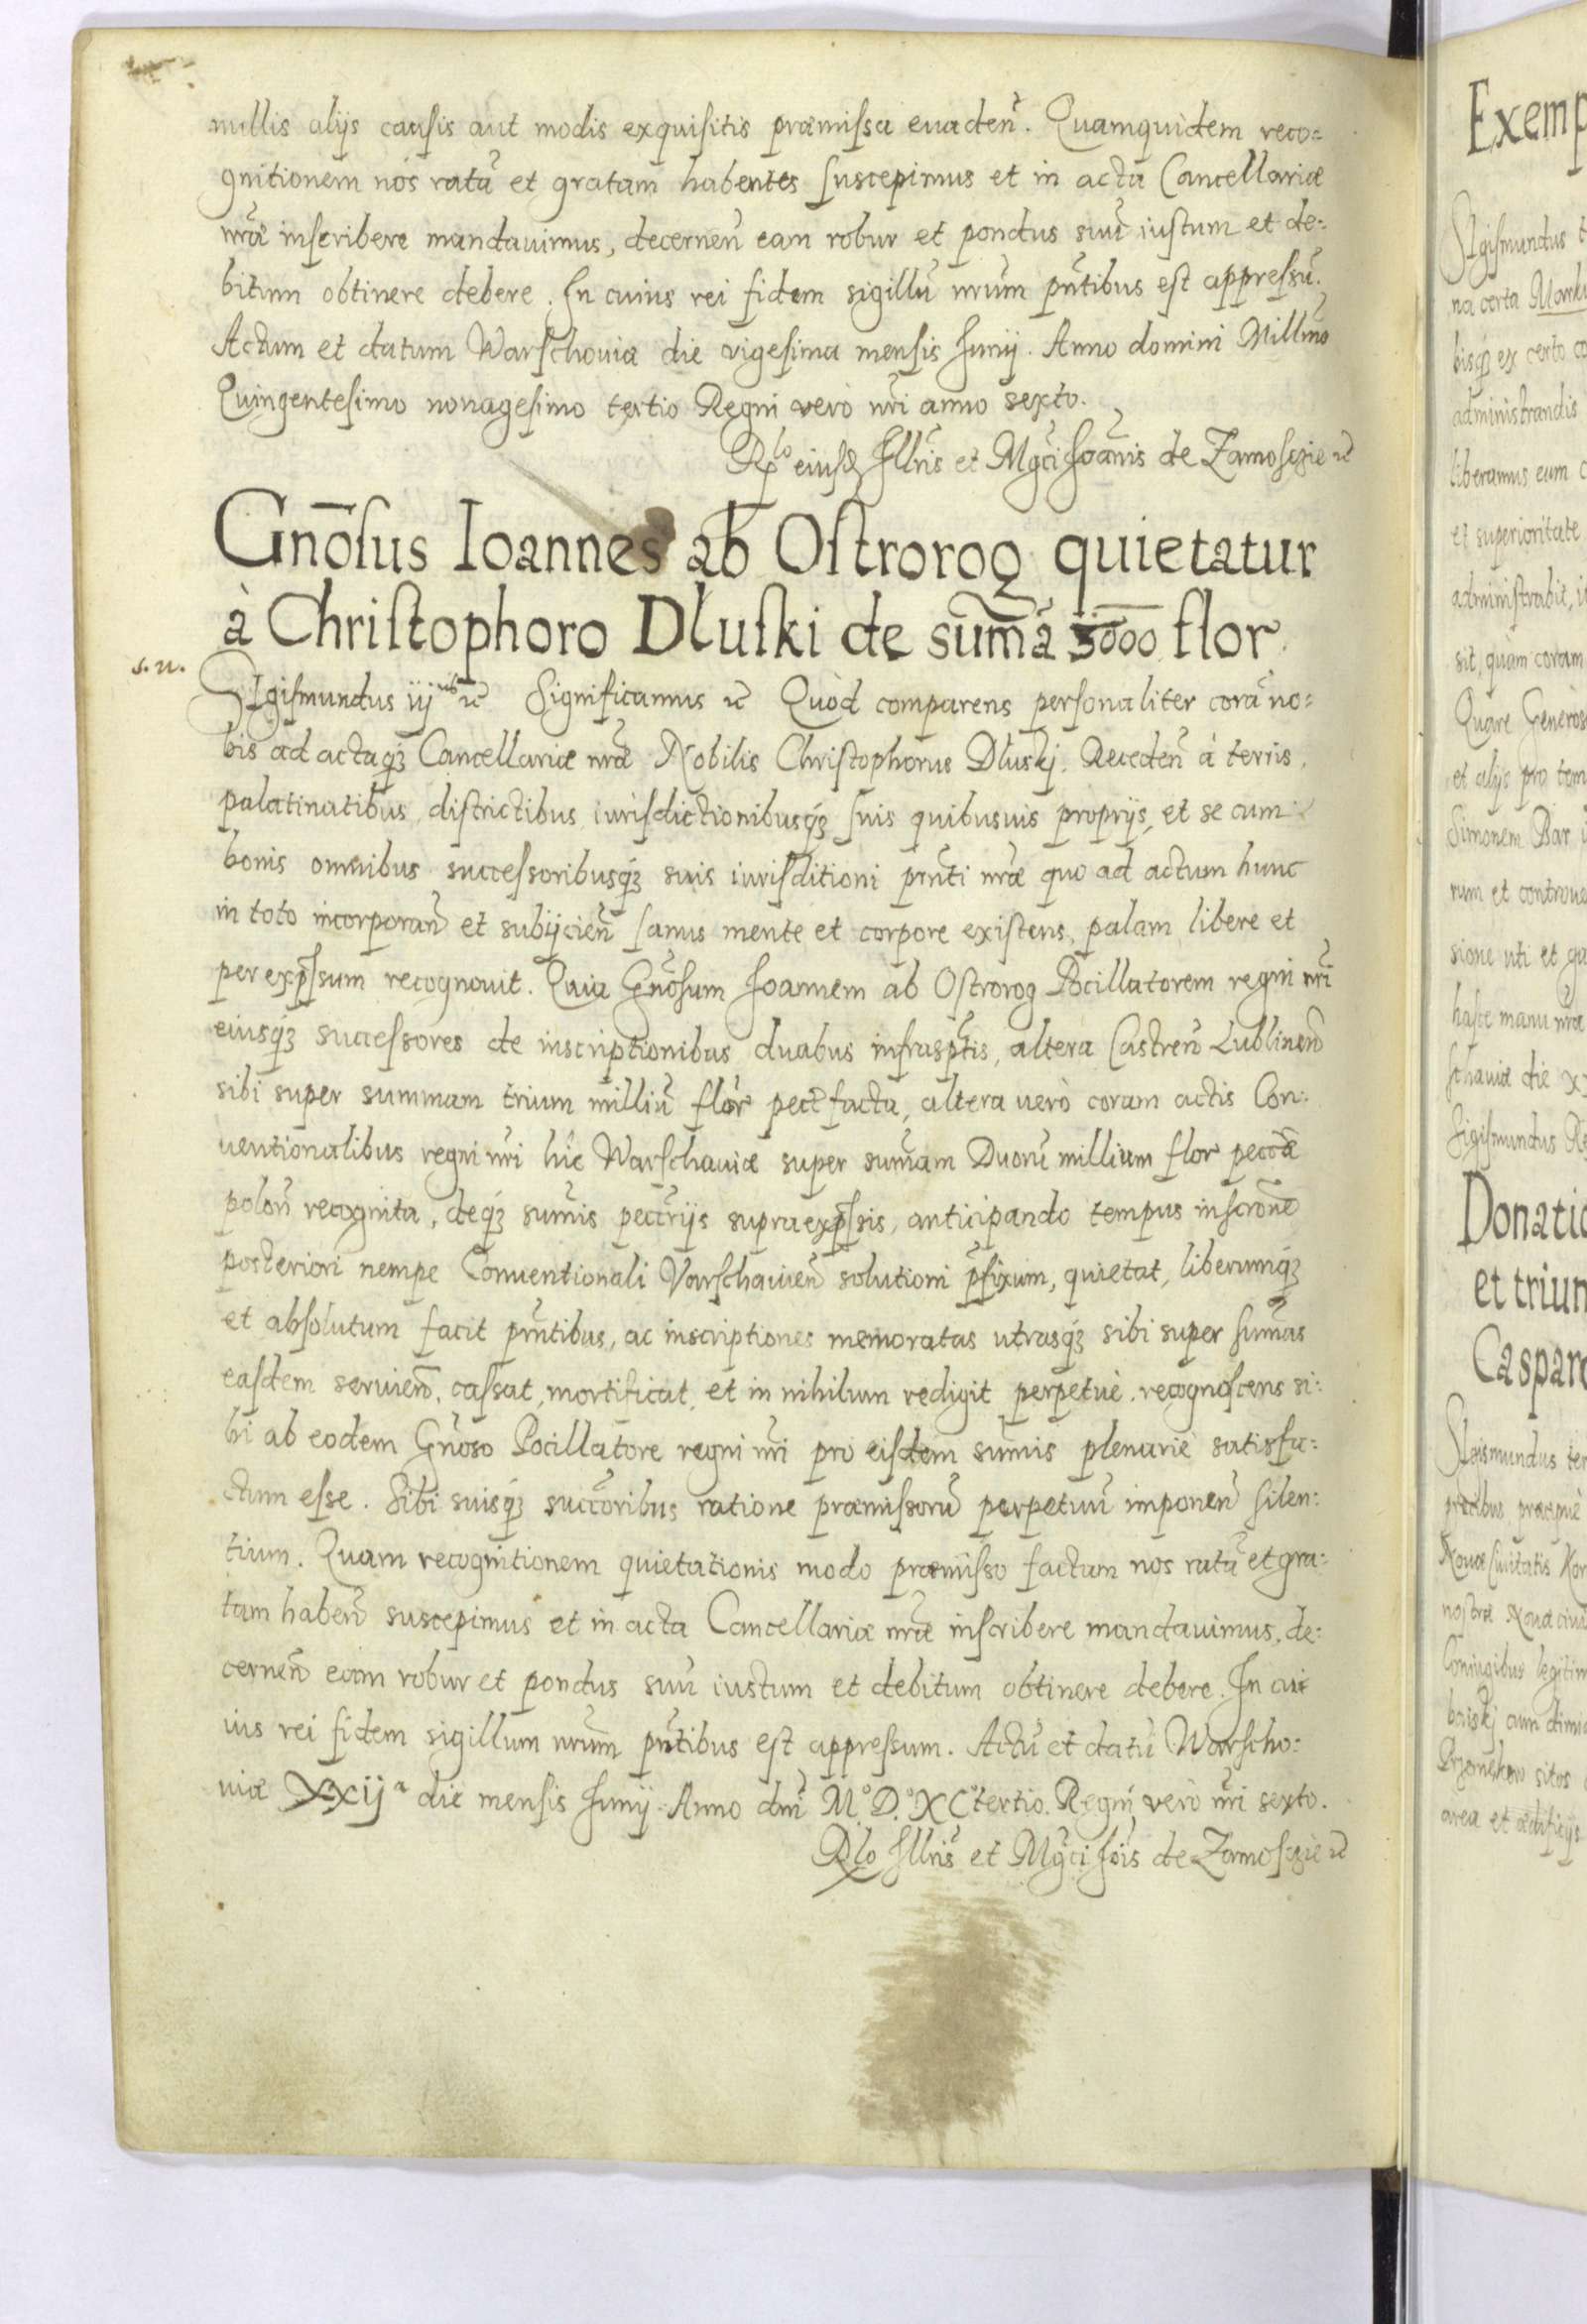 nullis alijs causis aut modis exquisitis præmissa euadeñ. Quamquidem reco=
gnitionem nos ratã et gratam habentes suscepimus et in acta Cancellariæ
nræ inscribere mandauimus, decerneñ eam robur et pondus suũ iustum et de=
bitum obtinere debere. In cuius rei fidem sigillũ nrũm pñtibus est appressũ.
Actum et datum Warschouiæ die vigesima mensis Junij. Anno domini Millmõ
Quingentesimo nonagesimo tertio Regni verò nri anno sexto.
Rlo eiusd Illris et Mgci Joãnis de Zamoscie etc
Gnõsus Ioannes ab Ostrorog quietatur
à Christophoro Dluski de sum̃a 5000 flor.
s. n.
Sigismundus iijus etc Significamus etc Quòd comparens personaliter corã no=
bis ad actaq́3 Cancellariæ nræ Nobilis Christophorus Dluskj. Recedeñ à terris,
palatinatibus, districtibus iurisdictionibusq́3 suis quibusuis proprijs, et se cum
bonis omnibus successoribusq́3 suis iurisditioni prñti nræ quo ad actum hunc
in toto incorporañ et subijcieñ sanus mente et corpore existens, palam libere et
per exp̃ssum recognouit. Quia Gnõsum Joannem ab Ostrorog Pocillatorem regni nri
eiusq́3 successores de inscriptionibus duabus infrasp̃tis, altera Castreñ Lublineñ
sibi super summam trium milliũ flor pecc facta, altera uerò coram actis Con=
uentionalibus regni nri hic Warschauiæ super sum̃am Duorũ millium flor peccæ
poloñ recognita, deq́3 sum̃is peccrijs supraexp̃ssis, anticipando tempus inscrõne
posteriori nempe Conuentionali Varschauieñ solutioni p̃fixum, quietat, liberumq́3
et absolutum facit prñtibus, ac inscriptiones memoratas utrasq́3 sibi super sum̃as
easdem seruieñ, cassat, mortificat, et in nihilum redigit perpetuè. recognoscens si=
bi ab eodem Gnõso Pocillatore regni nri pro eisdem sum̃is plenariè satisfa=
ctum esse. Sibi suisq́3 succoribus ratione præmissorũ perpetuũ imponeñ silen=
tium. Quam recognitionem quietationis modo præmisso factam nos ratã et gra=
tam habeñ suscepimus et in acta Cancellariæ nræ inscribere mandauimus, de=
cerneñ eam robur et pondus suũ iustum et debitum obtinere debere. In cu
ius rei fidem sigillum nrũm pñtibus est appressum. Actũ et datũ Warscho=
uiæ XXija die mensis Junij Anno dñi Mº.D.ºXCº tertio. Regni verò nri sexto.
Rlo Illris et Mgci Jois de Zamoscie etc
Exemp
Sigismundus t
na certa
bisq́3 ex certo co
administrandis
liberamus eum c
et superioritate
administrabit, i
sit, quàm coram
Quare Generos
et alijs pro tem
Simonem Bar
rum et controue
sione uti et ga
hasce manu nra
schauiæ die x
Sigismundus Re
Donatio
et trium
Caspar
Sigismundus ter
precibus præcipuè
Nouæ Ciuitatis
nostræ Noua ciui
Coniugibus legitim
cum dimi
sitos
area et ædificijs